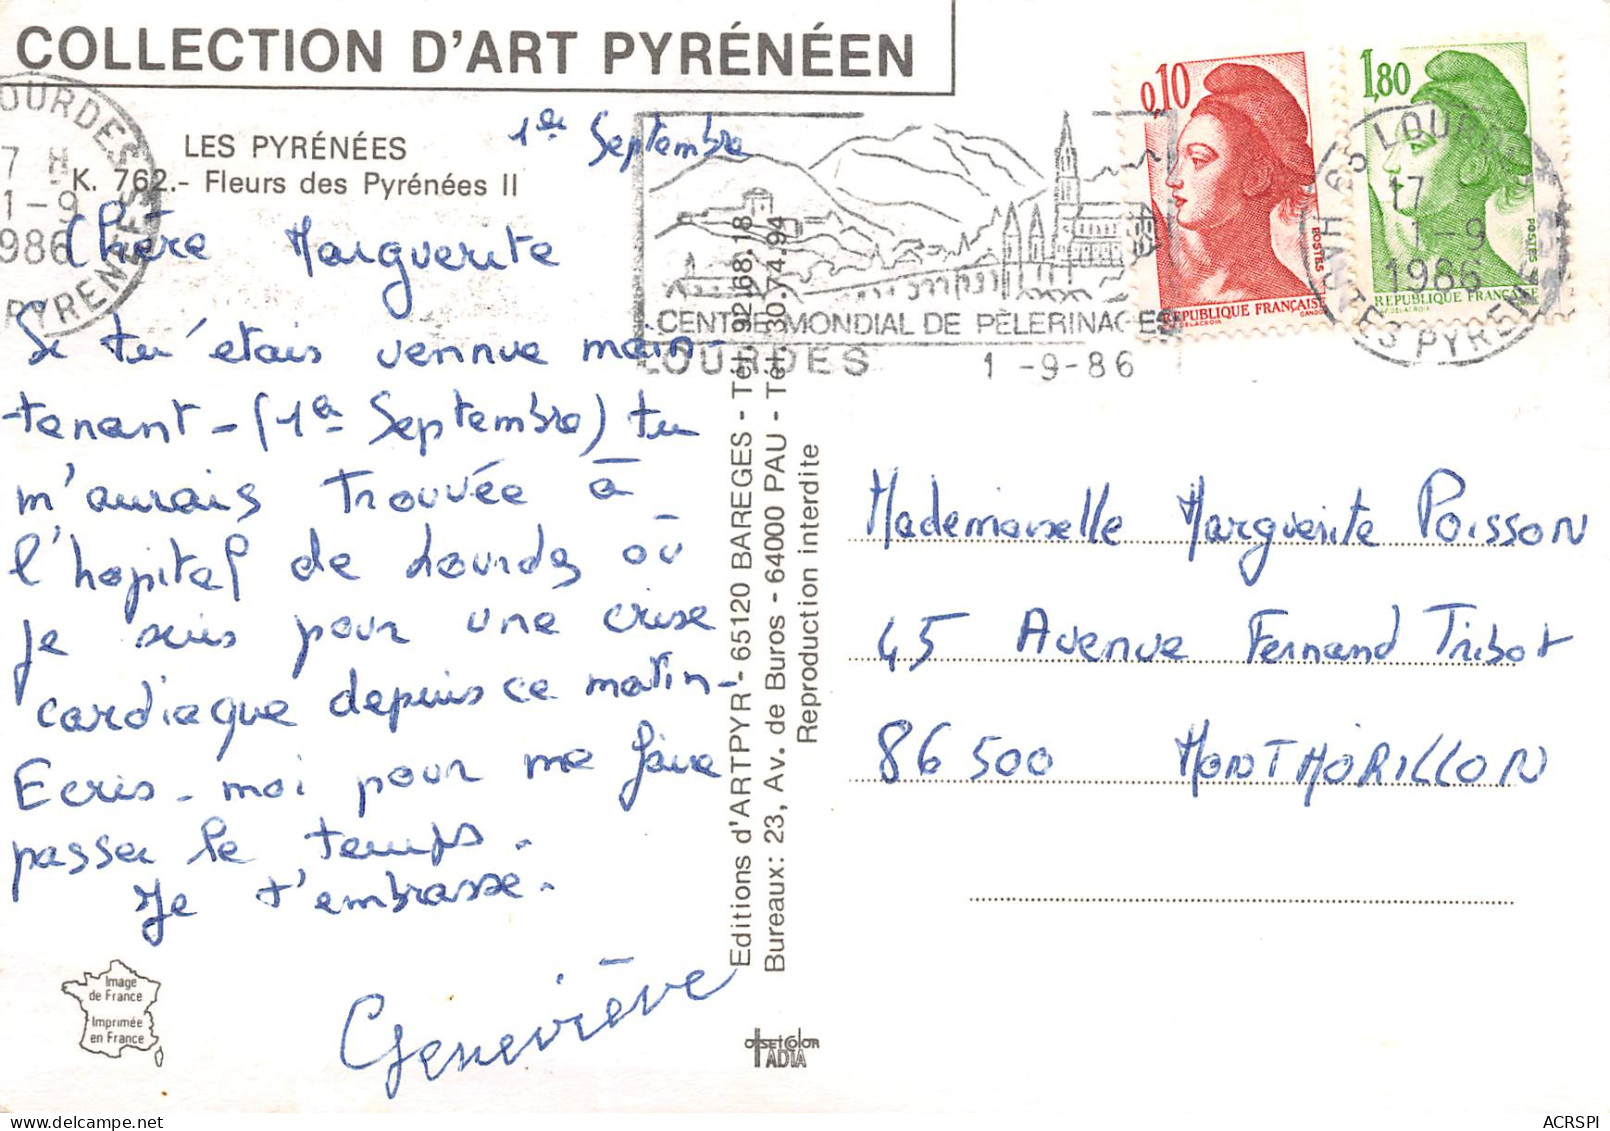 COLLECTION D'ART PYRÉNÉEN
LES PYRÉNÉES
K. 762.- Fleurs des Pyrénées II
1er Septembre
Chère Marguerite
Si tu étais vennue main-
tenant - (1er Septembre) tu
m'aurais trouvée à
l'hopital de Lourdes où
je suis pour une crise
cardiaque depuis ce matin-
Ecris-moi pour me faire
passer le temps.
Je t'embrasse.
Geneviève
Image
de France
Imprimée
en France
OURDES
7 H
1-9
986
PYRENEES
CENTRE MONDIAL DE PÈLERINAGES
LOURDES 1-9-86
0,10
POSTES
REPUBLIQUE FRANÇAISE
DELACROIX GANDON
1,80
POSTES
REPUBLIQUE FRANÇAISE
DELACROIX
65 LOURDES
17
1-9
1986
HAUTES PYRENEES
Editions d'ARTPYR - 65120 BAREGES - Tel. 92.68.18
Bureaux: 23, Av. de Buros - 64000 PAU - Tel. 30.74.94
Reproduction interdite
Mademoiselle Marguerite Poisson
45 Avenue Fernand Tribot
86500 MONTMORILLON
offset color
TADIA
delcampe.net
ACRSPI